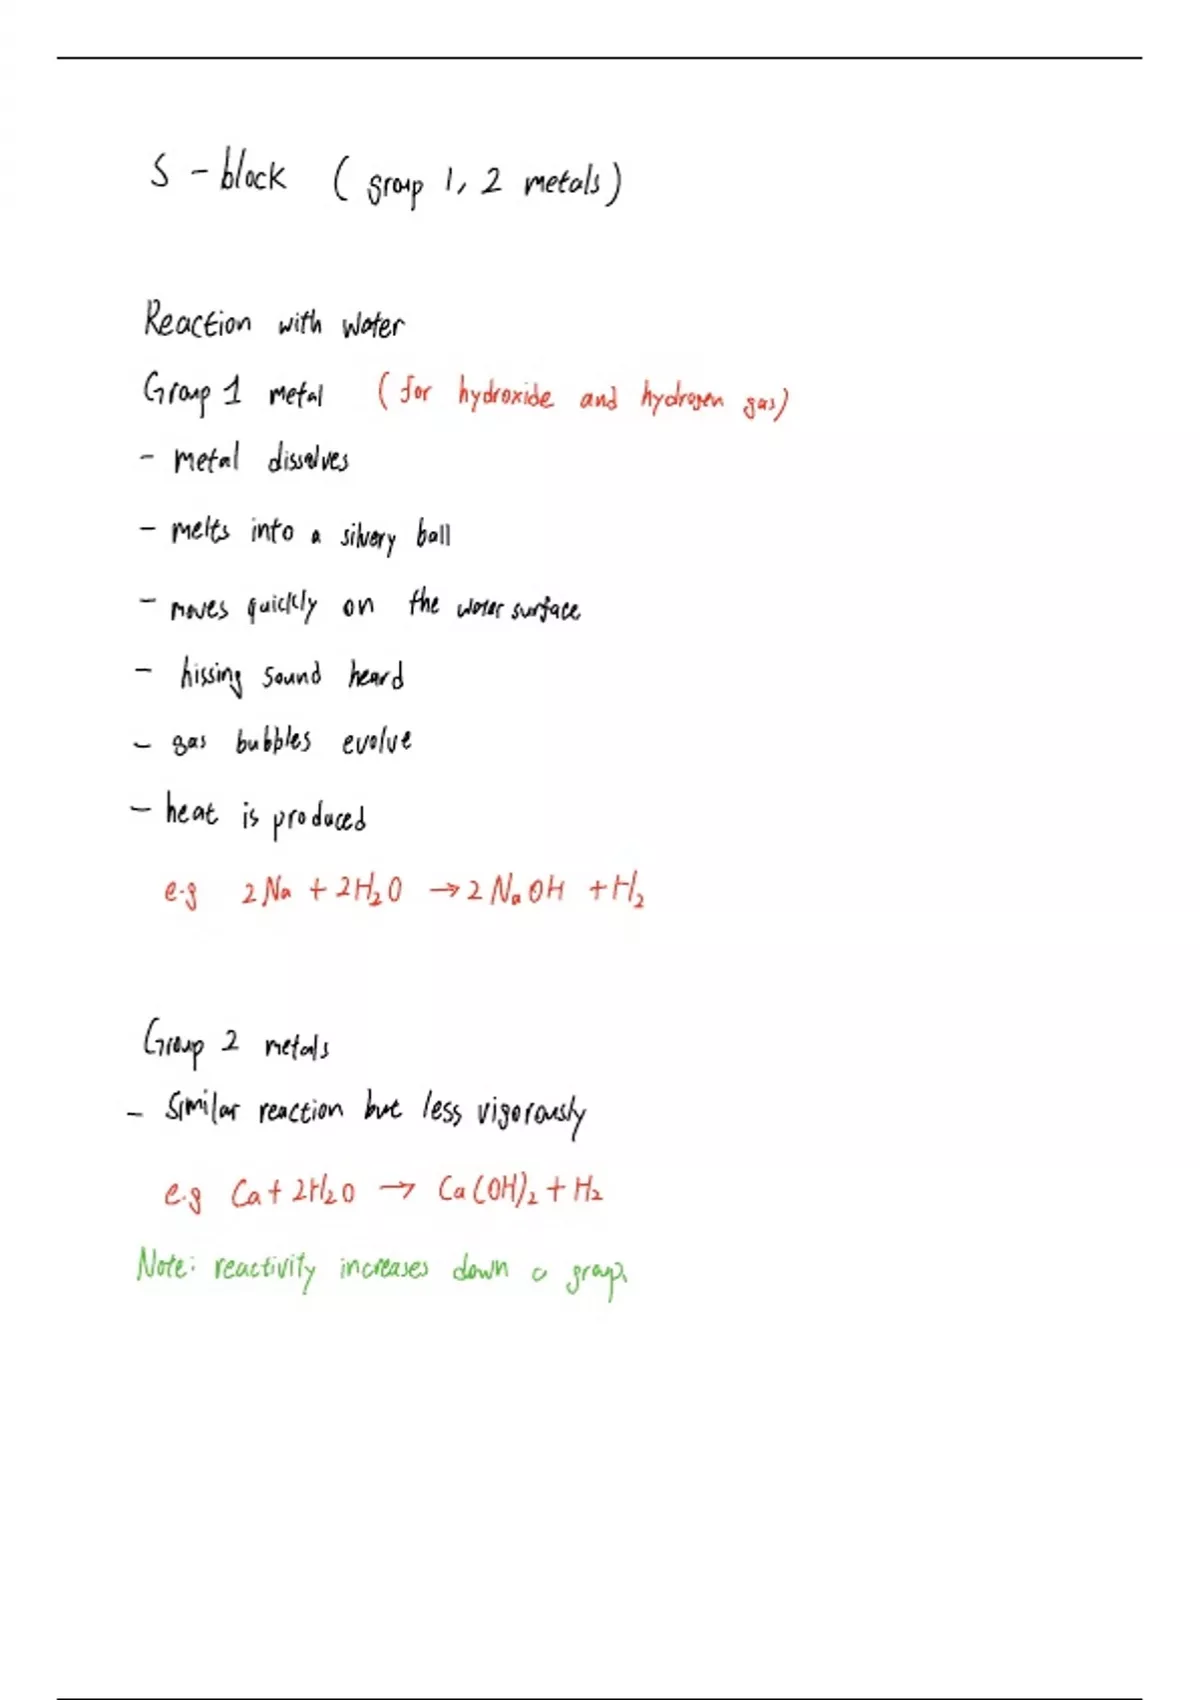 S - block ( group 1, 2 metals)
Reaction with water
Group 1 metal (for hydroxide and hydrogen gas)
- metal dissolves
- melts into a silvery ball
- moves quickly on the water surface
- hissing sound heard
- gas bubbles evolve
- heat is produced
e.g 2Na + 2H₂O → 2NaOH + H₂
Group 2 metals
- Similar reaction but less vigorously
e.g Ca + 2H₂O → Ca(OH)₂ + H₂
Note: reactivity increases down a group.